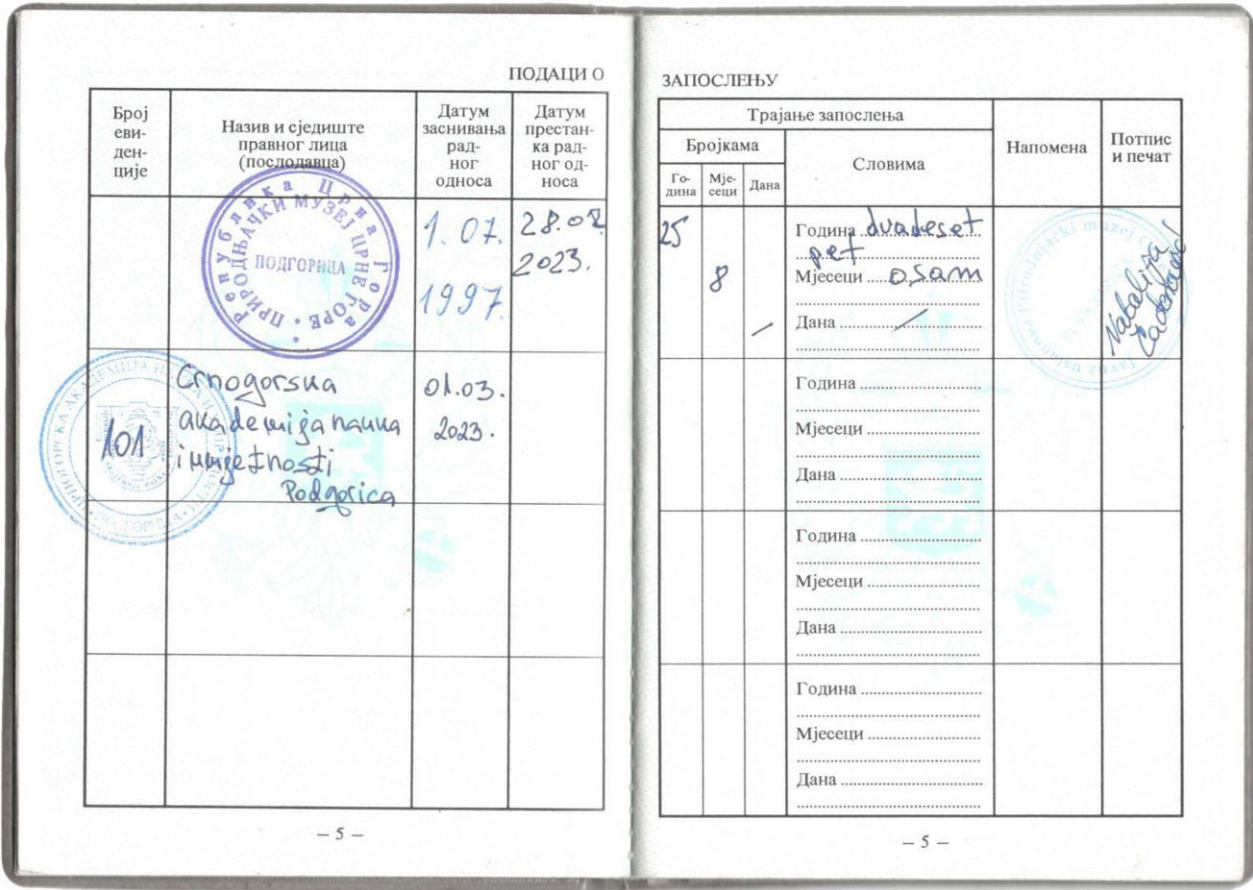 ПОДАЦИ О
Број
еви-
ден-
ције
Назив и сједиште
правног лица
(послодавца)
Датум
заснивања
рад-
ног
односа
Датум
престан-
ка рад-
ног од-
носа
Република Црна Гора
ПРИРОДЊАЧКИ МУЗЕЈ ЦРНЕ ГОРЕ
ПОДГОРИЦА
1. 07.
1997.
28.02
2023.
101
Crnogorska
akademija nauka
i umjetnosti
Podgorica
01.03.
2023.
– 5 –
ЗАПОСЛЕЊУ
Трајање запослења
Бројкама
Словима
Напомена
Потпис
и печат
Го-
дина
Мје-
сеци
Дана
25
8
/
Година dvadeset
pet
Мјесеци osam
Дана /
Natalija
Година
Мјесеци
Дана
Година
Мјесеци
Дана
Година
Мјесеци
Дана
– 5 –